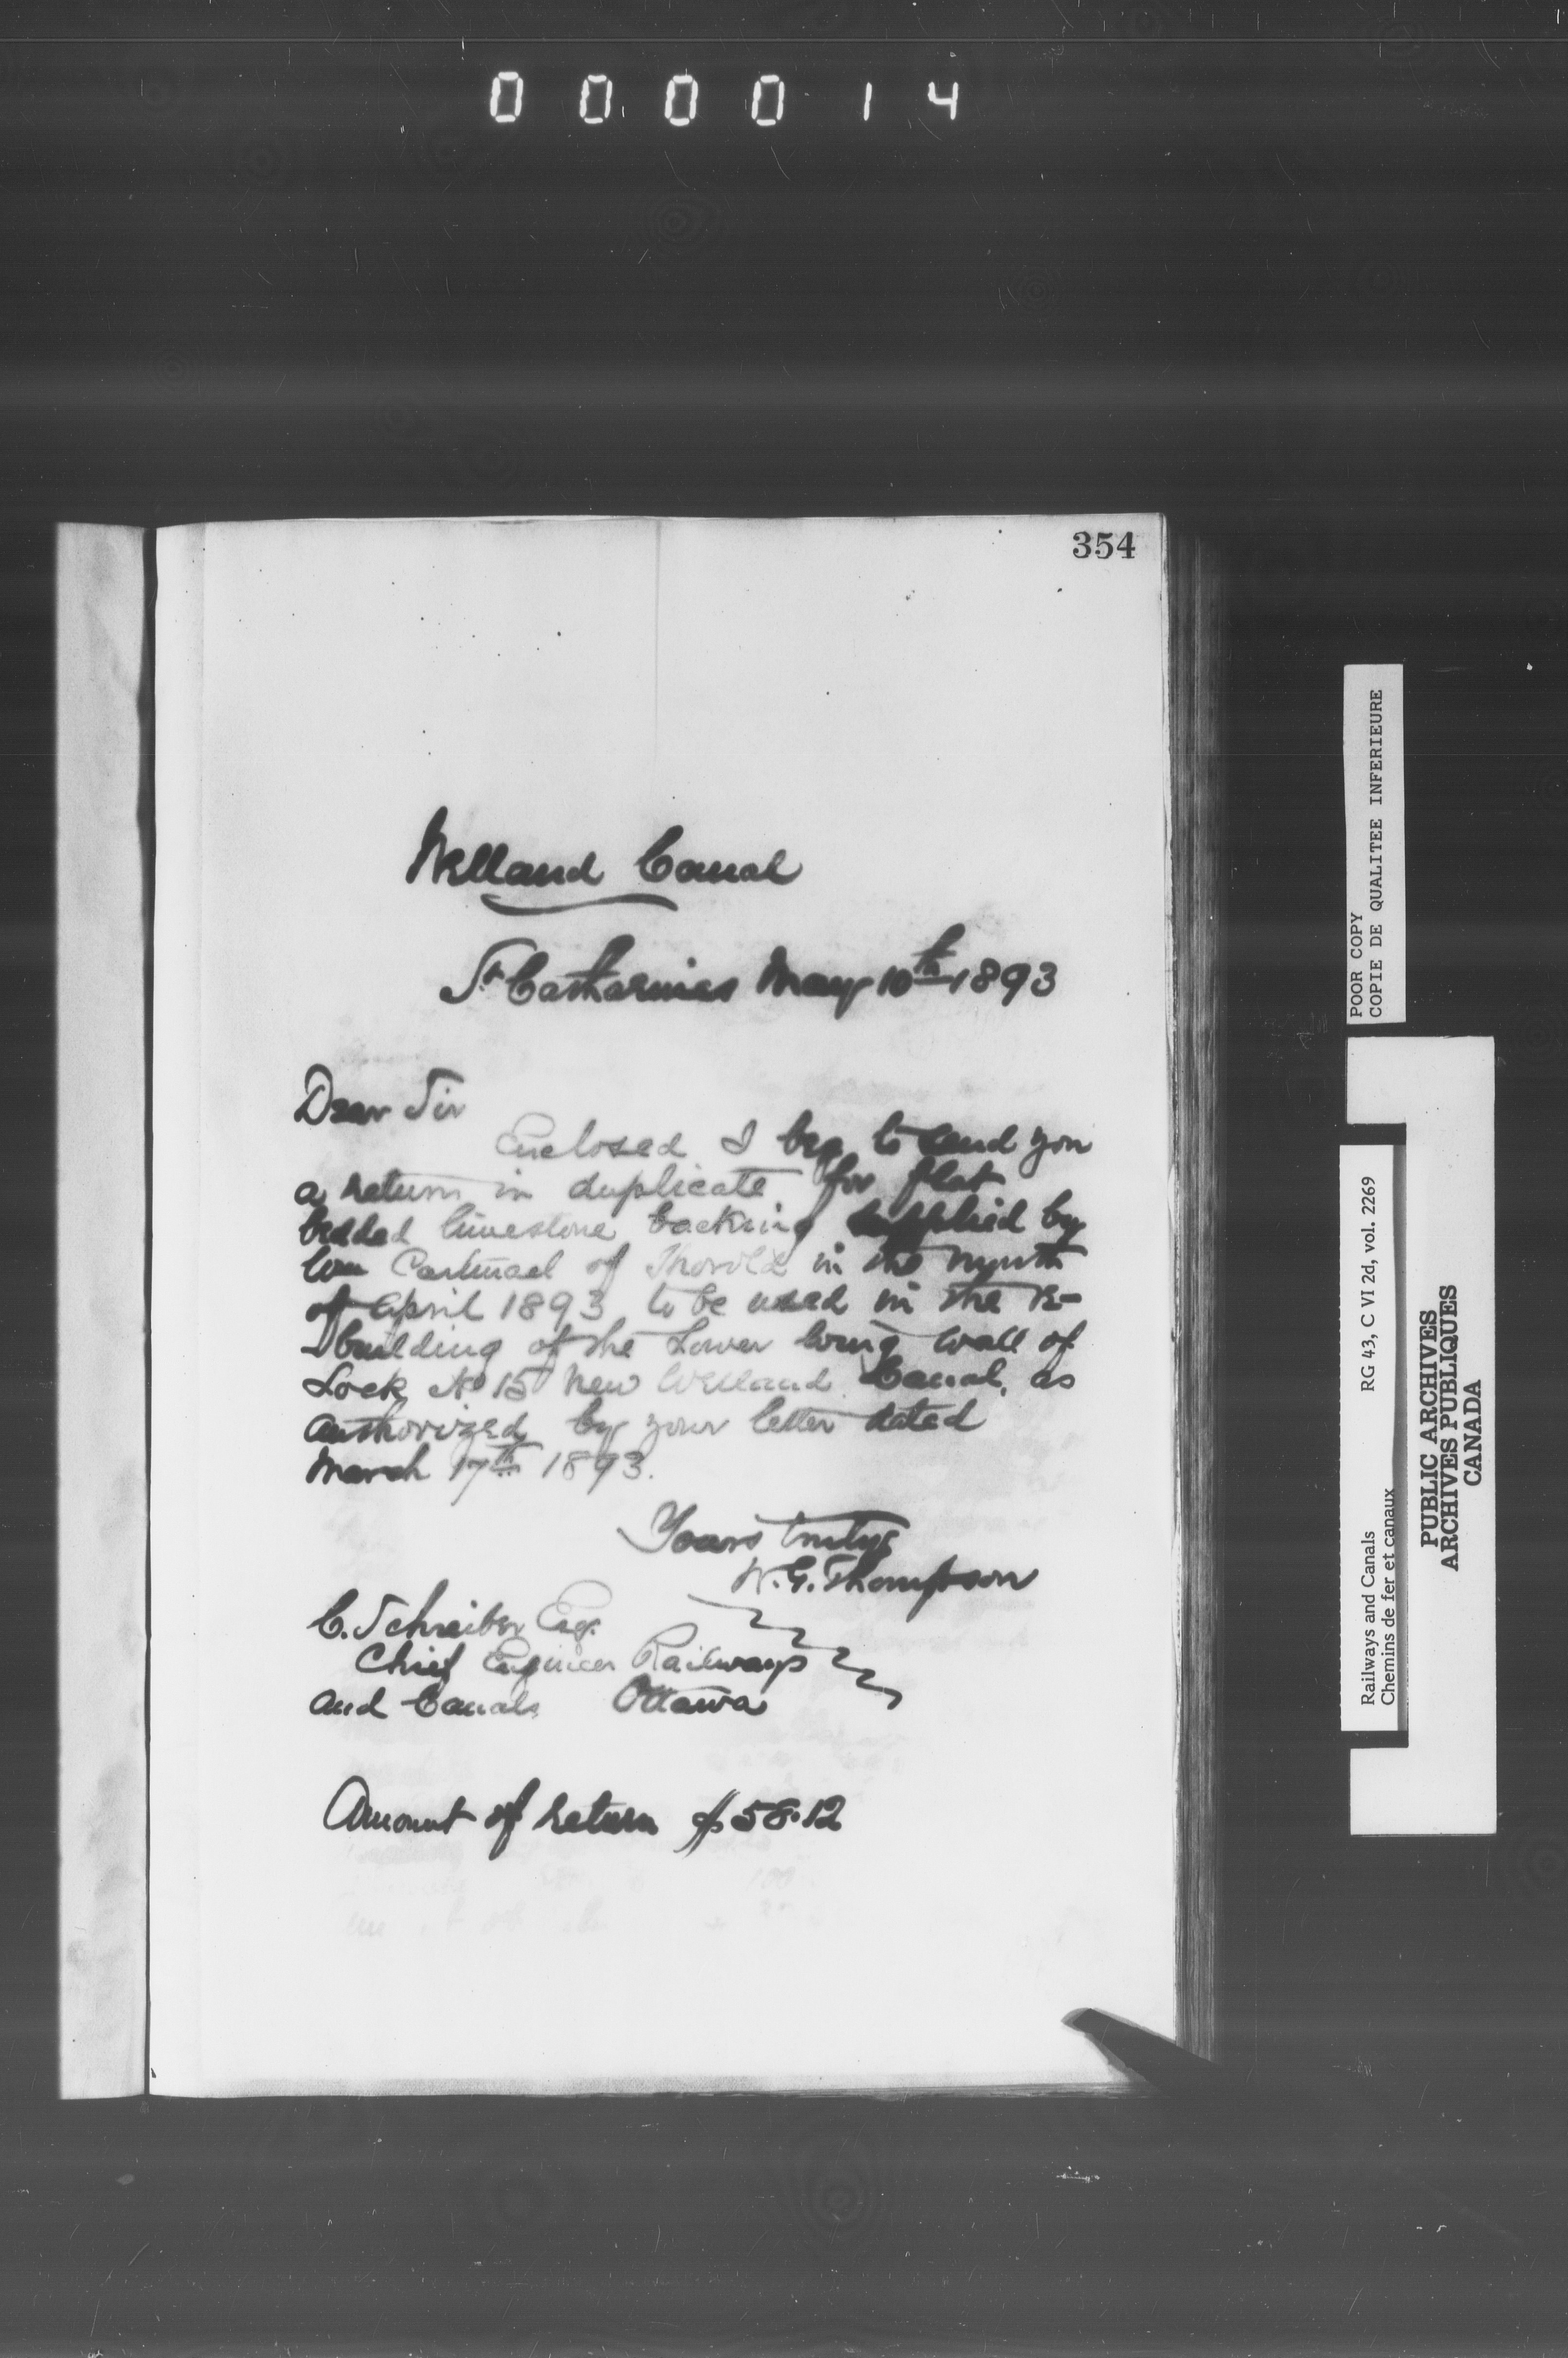 000014
354
Welland Canal
St Catharines May 10th 1893
Dear Sir
Enclosed I beg to send you
a return in duplicate for flat
bedded limestone backing supplied by
Wm Cartmael of Thorold in the month
of April 1893 to be used in the re-
-building of the Lower wing wall of
Lock No 15 New Welland Canal, as
authorized by your letter dated
March 17th 1893.
Yours truly
W.G. Thompson
C. Schreiber Esq.
Chief Engineer Railways
and Canals Ottawa
Amount of return $58.12
POOR COPY
COPIE DE QUALITEE INFERIEURE
Railways and Canals RG 43, C VI 2d, vol. 2269
Chemins de fer et canaux
PUBLIC ARCHIVES
ARCHIVES PUBLIQUES
CANADA